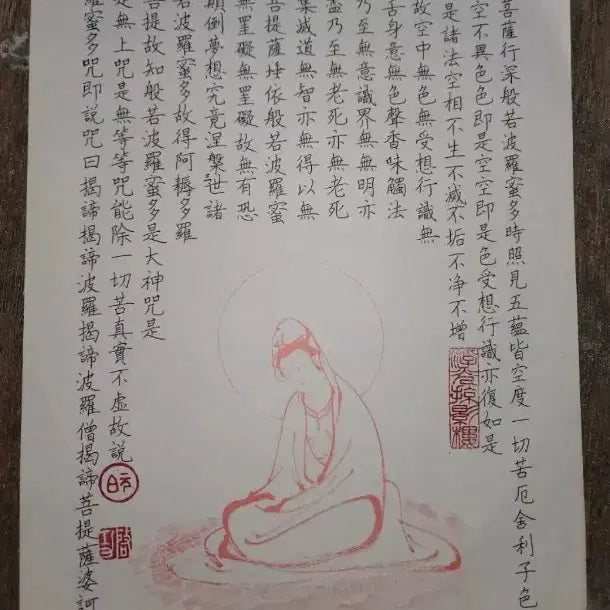 菩薩行深般若波羅蜜多時照見五蘊皆空度一切苦厄舍利子色
空不異色色即是空空即是色受想行識亦復如是
是諸法空相不生不滅不垢不净不增
故空中無色無受想行識無
舌身意無色聲香味觸法
乃至無意識界無無明亦
盡乃至無老死亦無老死
集滅道無智亦無得以無
菩提薩埵依般若波羅蜜
無罣礙無罣礙故無有恐
顛倒夢想究竟涅槃世諸
若波羅蜜多故得阿耨多羅
菩提故知般若波羅蜜多是大神咒是
是無上咒是無等等咒能除一切苦真實不虛故說
羅蜜多咒即說咒曰揭諦揭諦波羅揭諦波羅僧揭諦菩提薩婆訶
浮光掠影樓